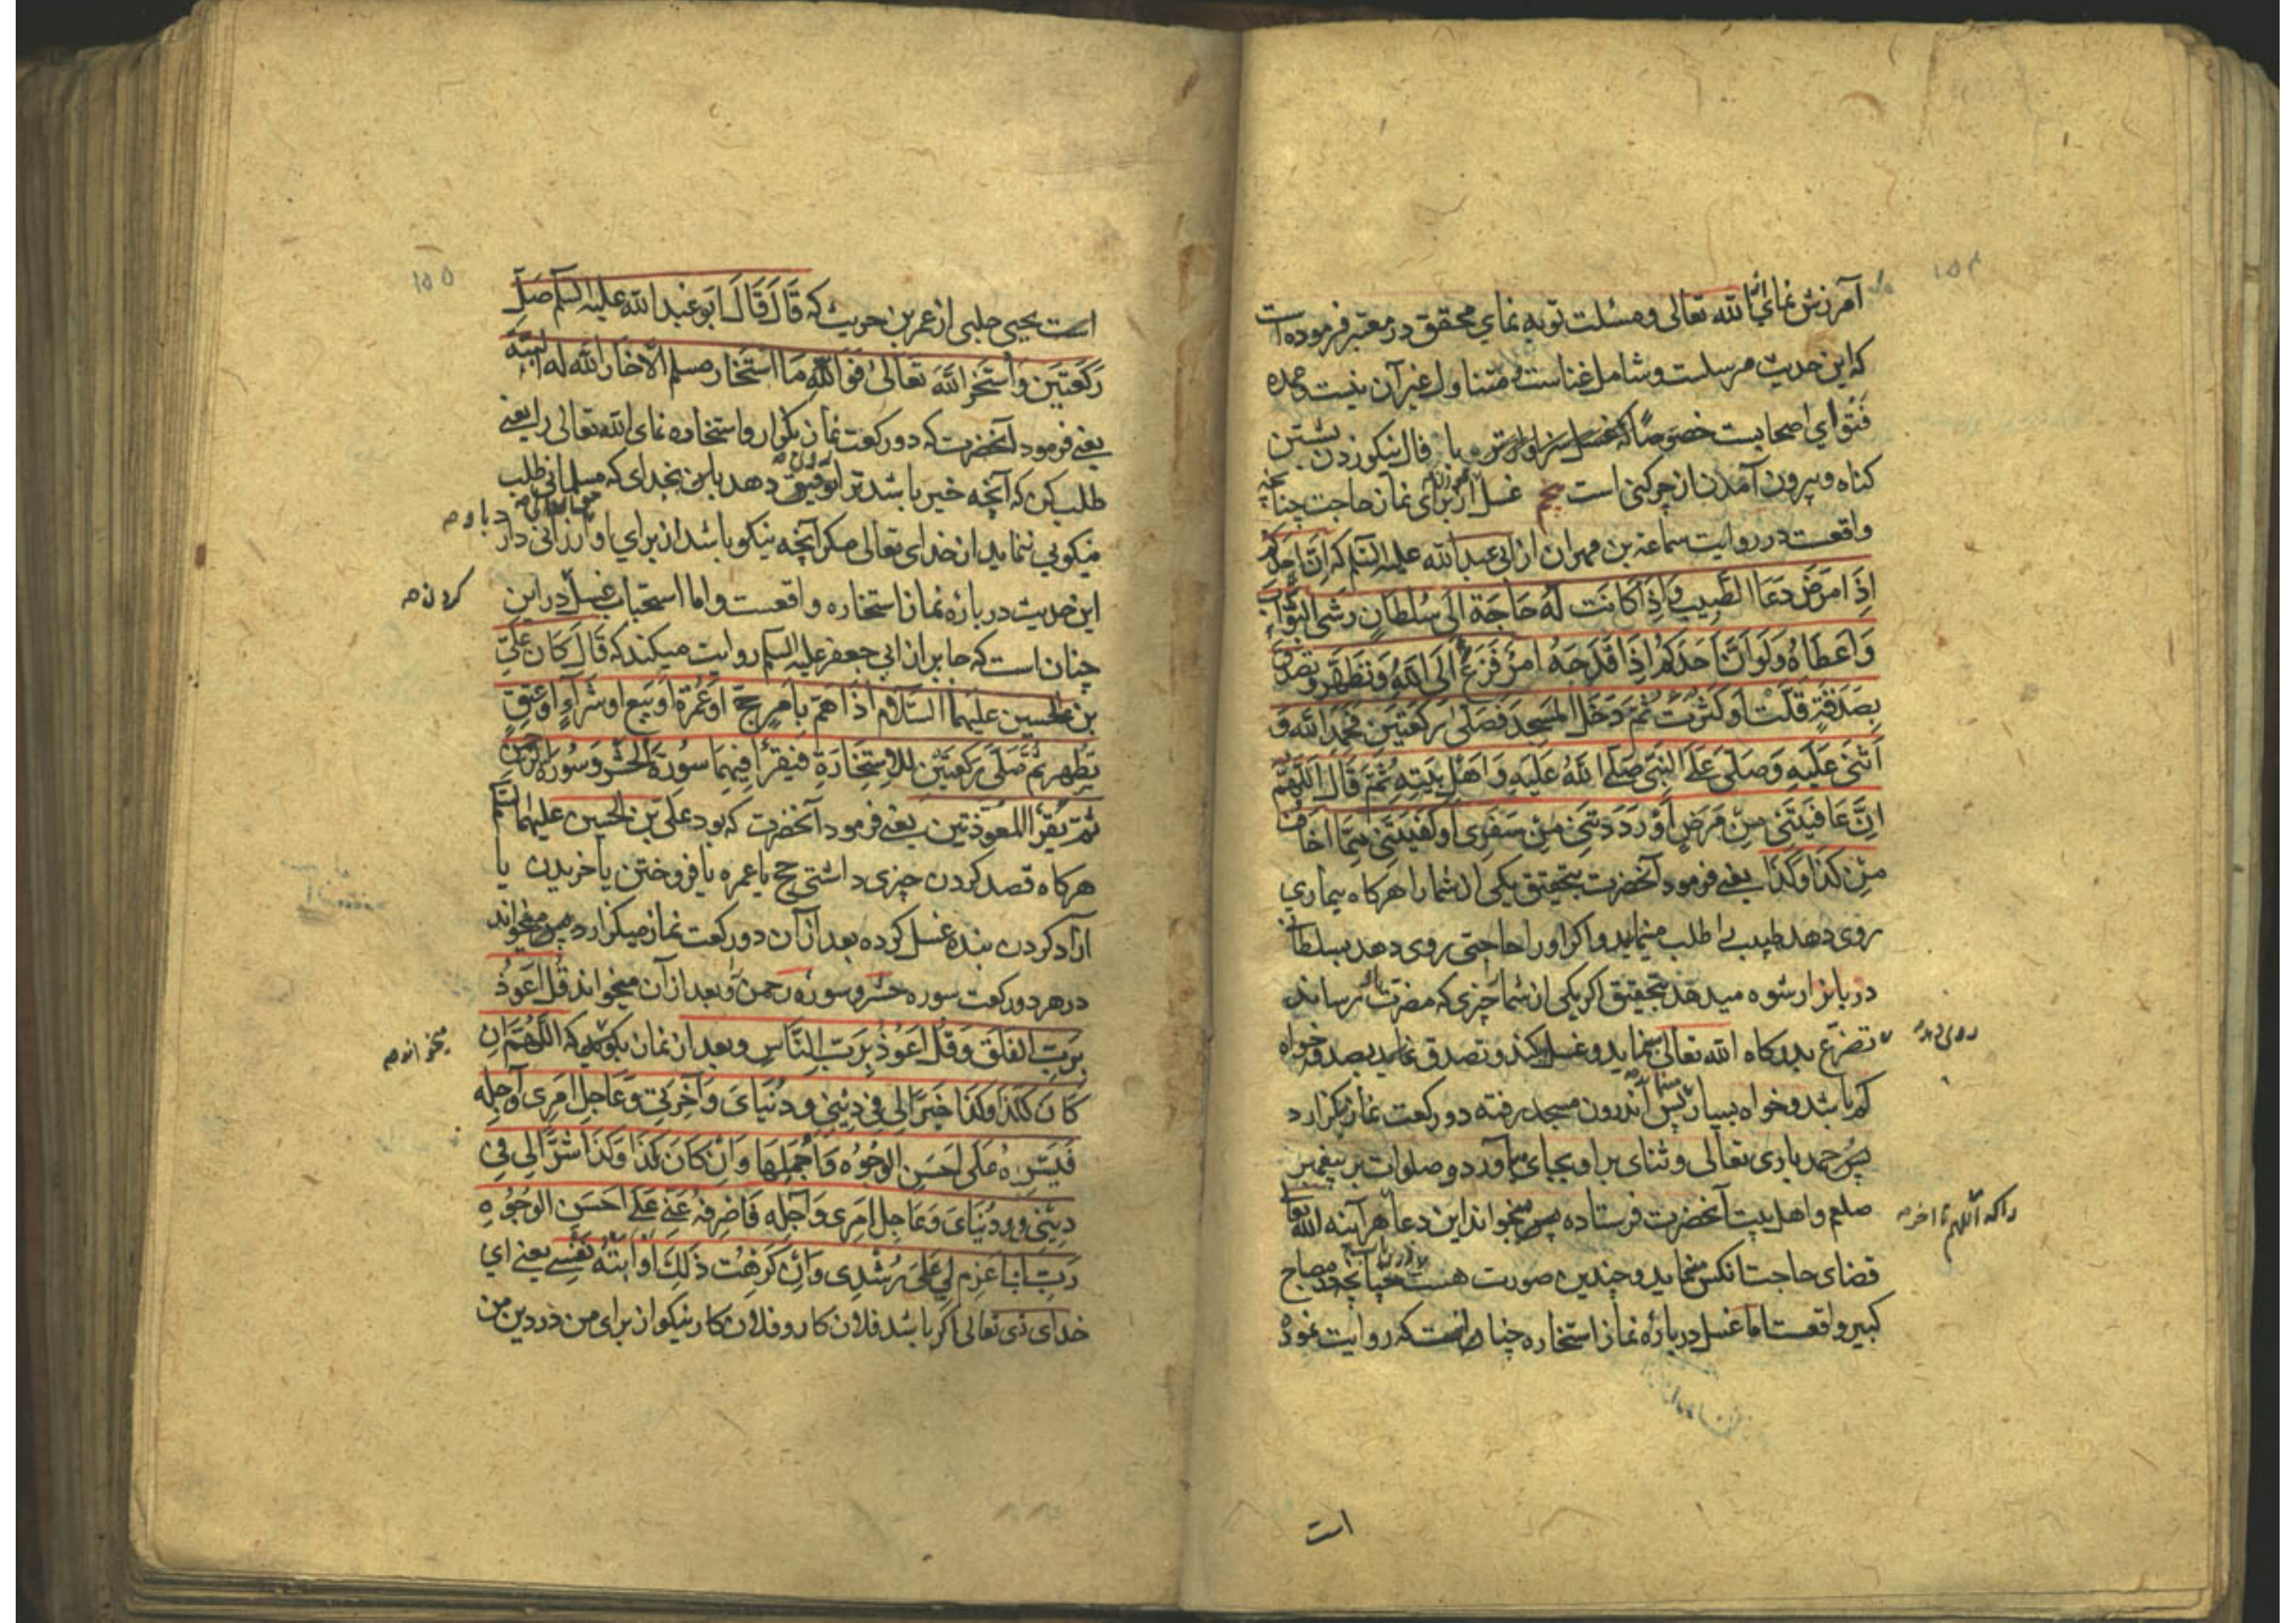 ۱۵۴
آمرزش نمای الله تعالی و مسئلت توبه نمای محقق در معتبر فرموده است
که این حدیث مرسلست و شامل غناست و متناول غیر آن نیست و عمده
فتوای اصحابست خصوصا که غسل یا فال نیکو زدن بشستن
کناه و بیرون آمدن از چرکنی است غسل از برای نماز حاجت چنانچه
واقعست در روایت سماعة بن مهران از ابی عبد الله علیه السلم که ان احدکم
اِذَا مَرِضَ دَعَا الطَّبِیبَ وَ اِذَا کَانَت لَهُ حَاجَة اِلَی سُلطَانٍ رَشَی البَوَّابَ
وَ اَعطَاهُ وَ لَو اَنَّ اَحَدَکُم اِذَا فَدَحَهُ اَمرٌ فَزَعَ اِلَی اللهِ وَ تَطَهَّرَ و تصدق
بِصَدَقَةٍ قَلَّت اَو کَثُرَت ثُمَّ دَخَلَ المَسجِدَ فَصَلَّی رَکعَتَین فَحَمِدَ الله وَ
اَثنَی عَلَیهِ وَ صَلَّی عَلَی النَّبِی صَلَّی اللهُ عَلَیهِ وَ اَهلِ بَیتِهِ ثُمَّ قَالَ اللهُمَّ
اِنَّ عَافَیتَنِی مِن مَرَضِی اَو رَدَدتَنِی مِن سَفَرِی اَو کَفَیتَنِی مِمَّا اَخَاف
مِن کَذَا وَ کَذَا یعنی فرمود آنحضرت بتحقیق یکی از شما را هر کاه بیماری
روی دهد طبیب را طلب مینماید و اکر او را حاجتی روی دهد بسلطان
دربانرا رشوه میدهد بتحقیق اکر یکی از شما را چیزی که مضرت رساند
تضرع بدرکاه الله تعالی نماید و غسل کند و تصدق نماید بصدقه خواه
روی دهد
کم باشد و خواه بسیار پس اندرون مسجد رفته دو رکعت نماز بکزارد
پس حمد باری تعالی و ثنای بر او بجای آورد و صلوات بر پیغمبر
صلعم و اهل بیت آنحضرت فرستاده پس بخواند این دعا هر آینه الله تعالی
را که اللهم تا آخر
قضای حاجت انکس مینماید و چندین صورت هست چنانچه در مصباح
کبیر واقعست اما غسل درباره نماز استخاره چنانست که روایت نموده
است
۱۵۵
است یحیی حلبی از عمر بن حریث که قَالَ قَالَ اَبُو عَبدِ الله علیه السلم صَلِّ
رَکعَتَینِ وَ استَخِرِ اللهَ تَعَالَی فَوَ اللهِ مَا استَخَارَ مسلم اِلّا خَارَ اللهُ لَهُ البتة
یعنی فرمود آنحضرت که دو رکعت نماز بکزار و استخاره نمای الله تعالی را یعنی
طلب کن که آنچه خیر باشد ترا توفیق دهد باین بخدای که مسلمانی طلب
نیکویی ننماید از خدای تعالی مکر آنچه نیکو باشد از برای او ارزانی دارد
این حدیث درباره نماز استخاره واقعست و اما استحباب غسل در این
کردن
چنان است که جابر از ابی جعفر علیه السلم روایت میکند که قَالَ کَانَ عَلِیُّ
بن الحسین علیهما السَّلَامُ اِذَا هَمَّ بِاَمرِ حَجٍّ اَو عُمرَةٍ اَو بَیعٍ او شِرَاءٍ اَو عِتقٍ
تَطَهَّرَ ثُمَّ صَلَّی رَکعَتَینِ لِلِاستِخَارَةِ فَیَقرَأُ فِیهِمَا سُورَةَ الحَشرِ وَ سُورَةَ الرَّحمن
ثُمَّ یَقرَأُ المُعَوَّذَتَینِ یعنی فرمود آنحضرت که بود علی بن الحسین علیهما السلم
هرکاه قصد کردن چیزی داشتی حج یا عمره یا فروختن یا خریدن یا
ازاد کردن بنده غسل کرده بعد از آن دو رکعت نماز میکزارد پس میخواند
در هر دو رکعت سوره حشر و سوره رحمن و بعد از آن میخواند قُل اَعُوذُ
بِرَبِّ الفَلَقِ وَ قُل اَعُوذُ بِرَبِّ النَّاسِ و بعد از نماز بکوید که اَللهُمَّ اِن
میخوانده
کَانَ کَذَا وَ کَذَا خَیرًا لِی فِی دِینِی وَ دُنیَایَ وَ آخِرَتِی وَ عَاجِلِ اَمرِی وَ آجِلِه
فَیَسِّرهُ عَلَی اَحسَنِ الوُجُوهِ وَ اَجمَلِهَا وَ اِن کَانَ کَذَا وَ کَذَا شَرًّا لِی فِی
دِینِی وَ دُنیَایَ وَ عَاجِلِ اَمرِی وَ آجِلِهِ فَاصرِفهُ عَنِّی عَلَی اَحسَنِ الوُجُوهِ
رَبِّ اعزِم لِی عَلَی رُشدِی وَ اِن کَرِهَت ذَلِکَ اَو اَبَتهُ نَفسِی یعنی ای
خدای تعالی اکر باشد فلان کار و فلان کار نیکو از برای من در دین من